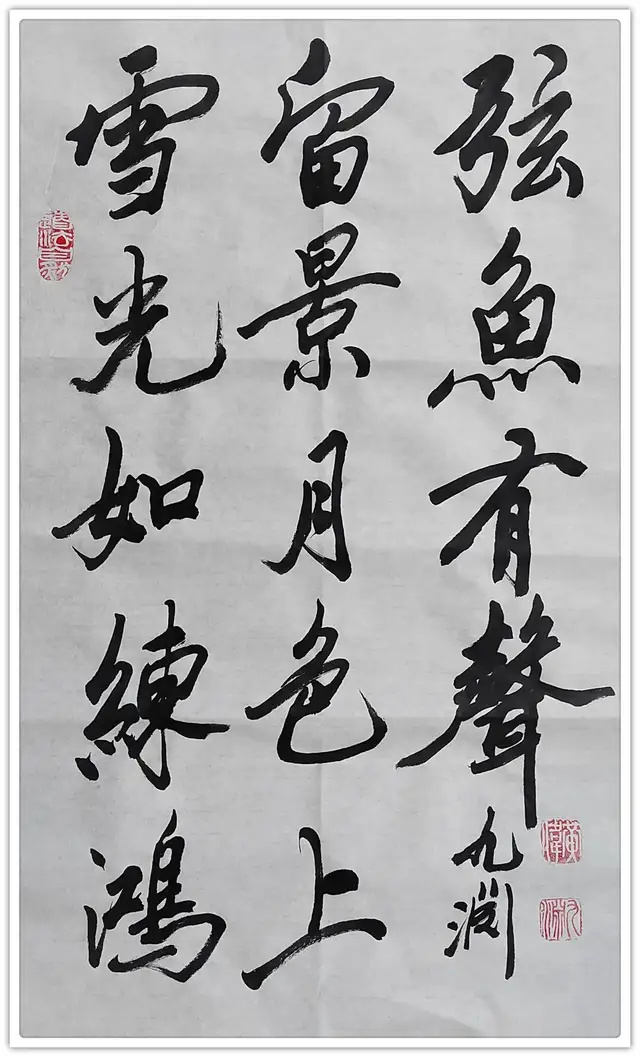 雪光如練鴻
留景月色上
弦魚有聲
九淵